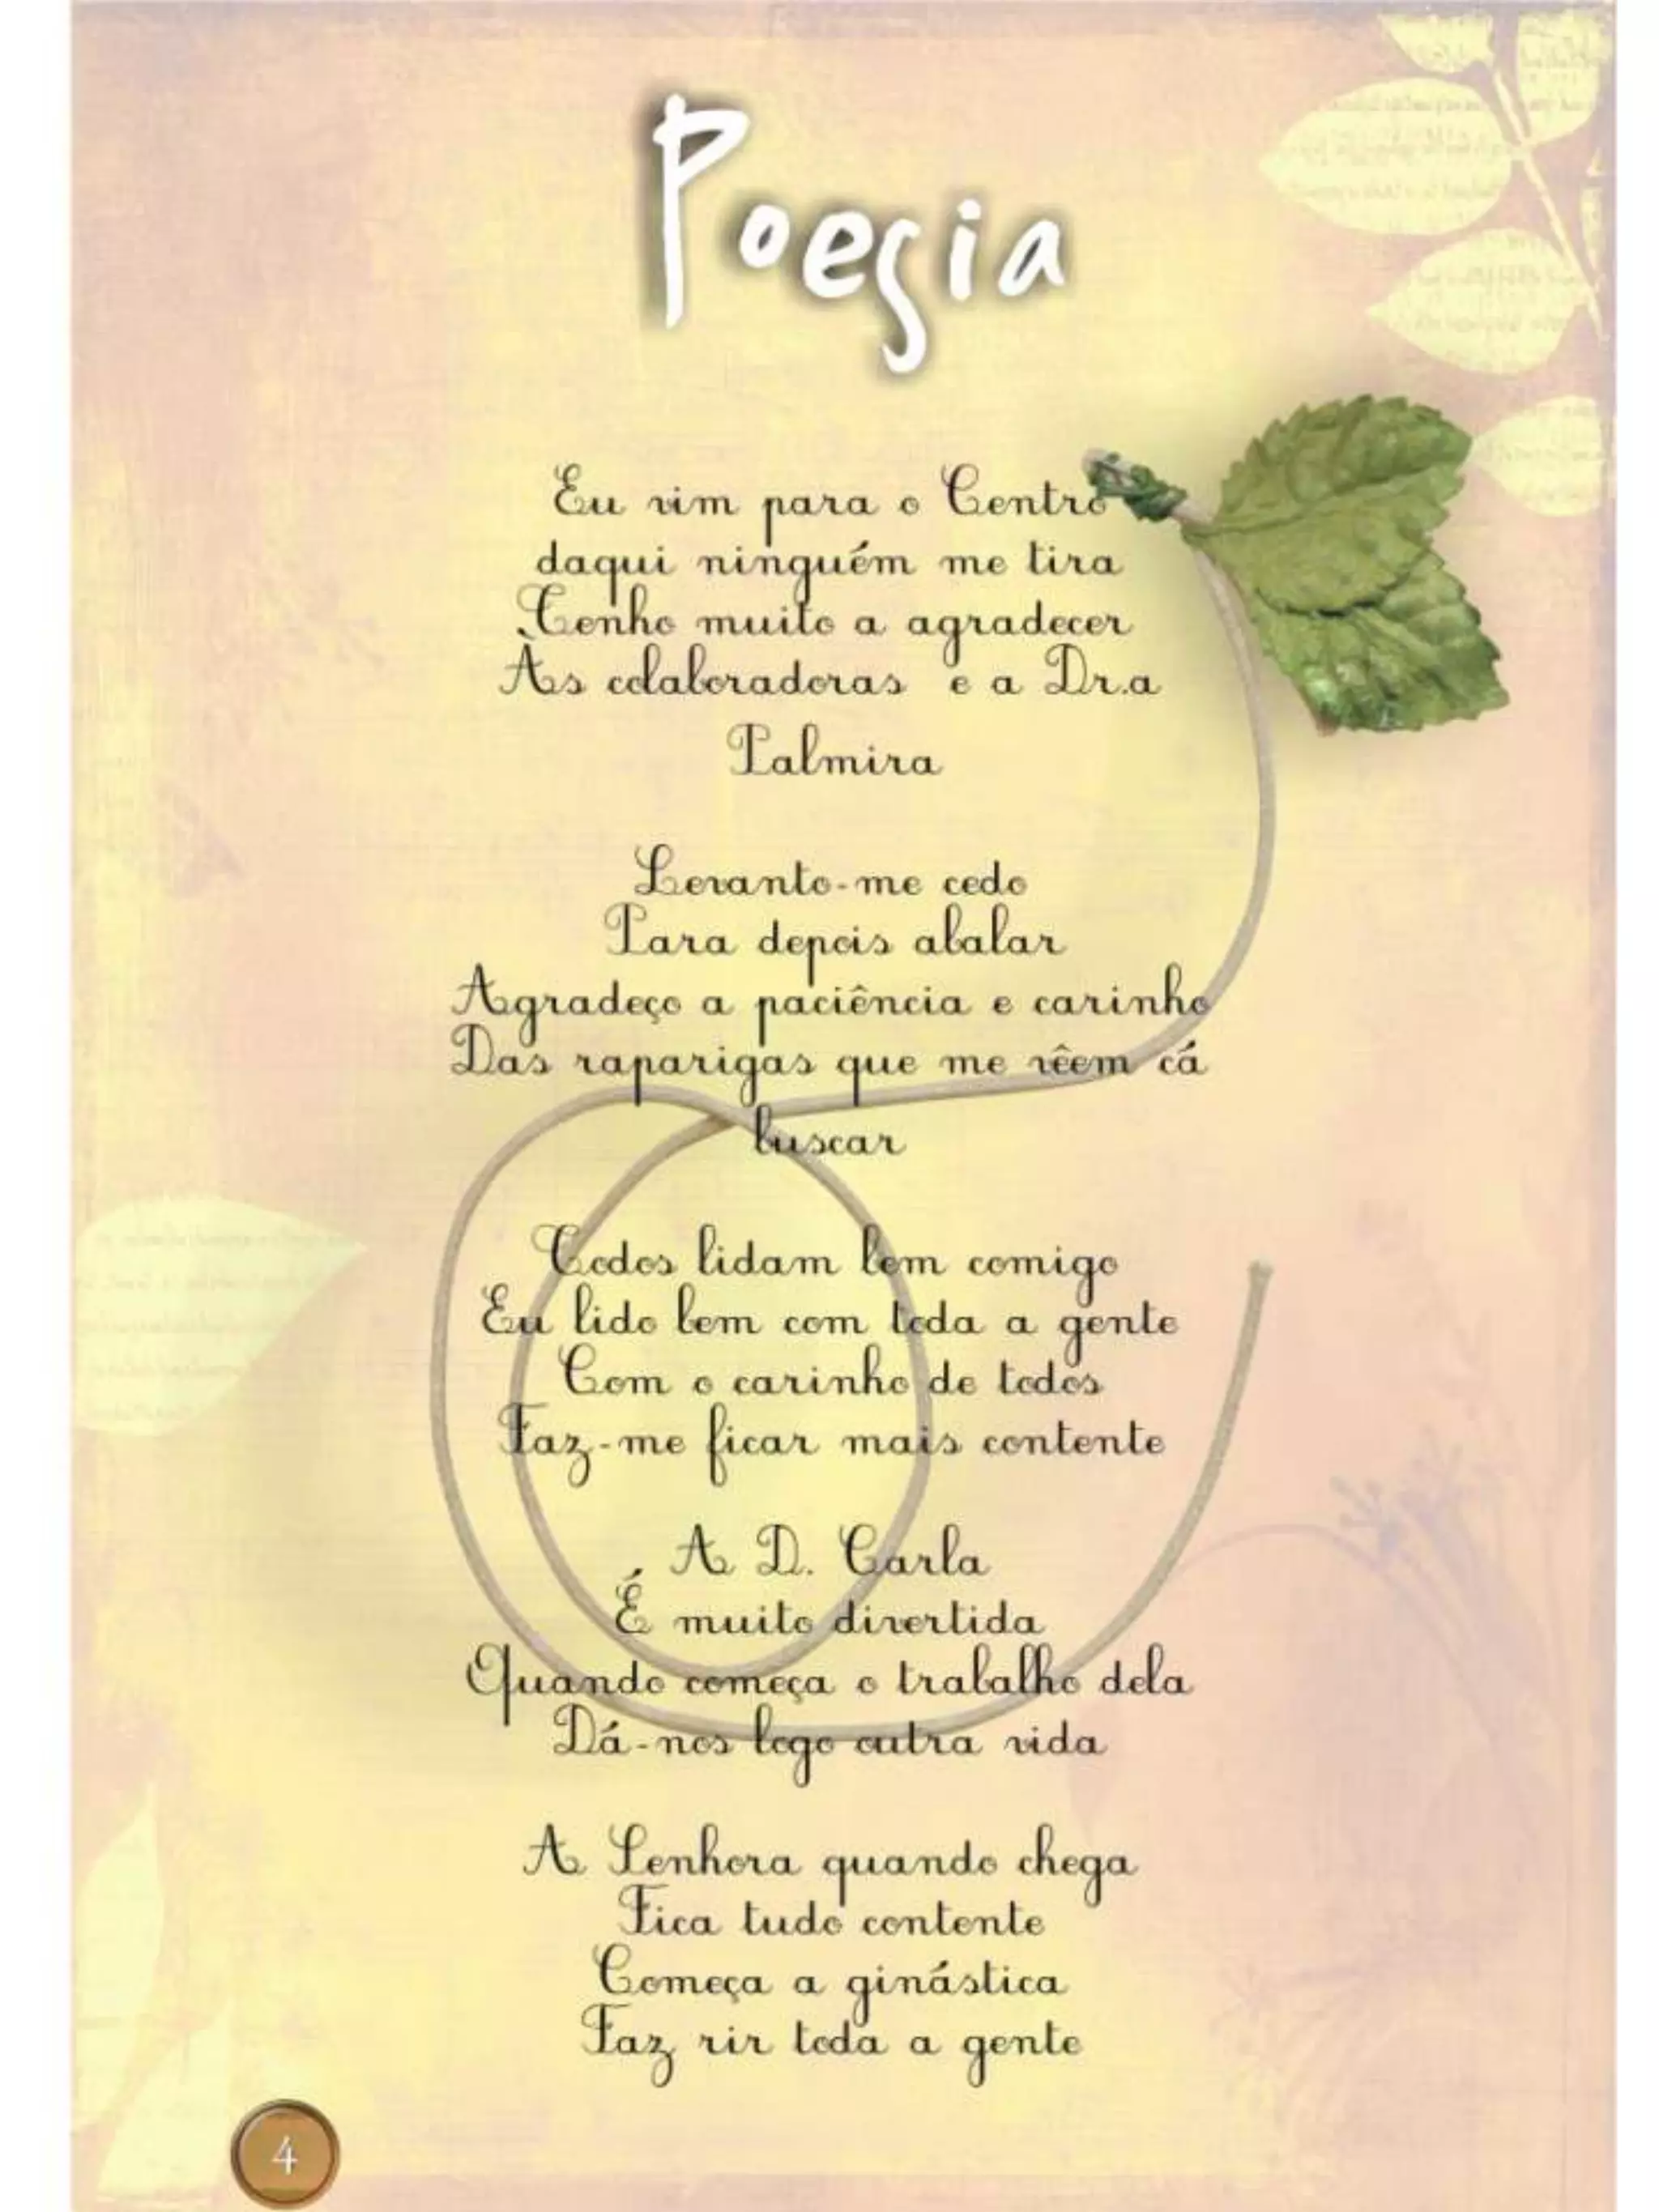 Poesia
Eu vim para o Centro
daqui ninguém me tira
Tenho muito a agradecer
Às colaboradoras e a Dr.a
Palmira
Levanto-me cedo
Para depois abalar
Agradeço a paciência e carinho
Das raparigas que me vêem cá
buscar
Todos lidam bem comigo
Eu lido bem com toda a gente
Com o carinho de todos
Faz-me ficar mais contente
A D. Carla
É muito divertida
Quando começa o trabalho dela
Dá-nos logo outra vida
A Senhora quando chega
Fica tudo contente
Começa a ginástica
Faz rir toda a gente
4